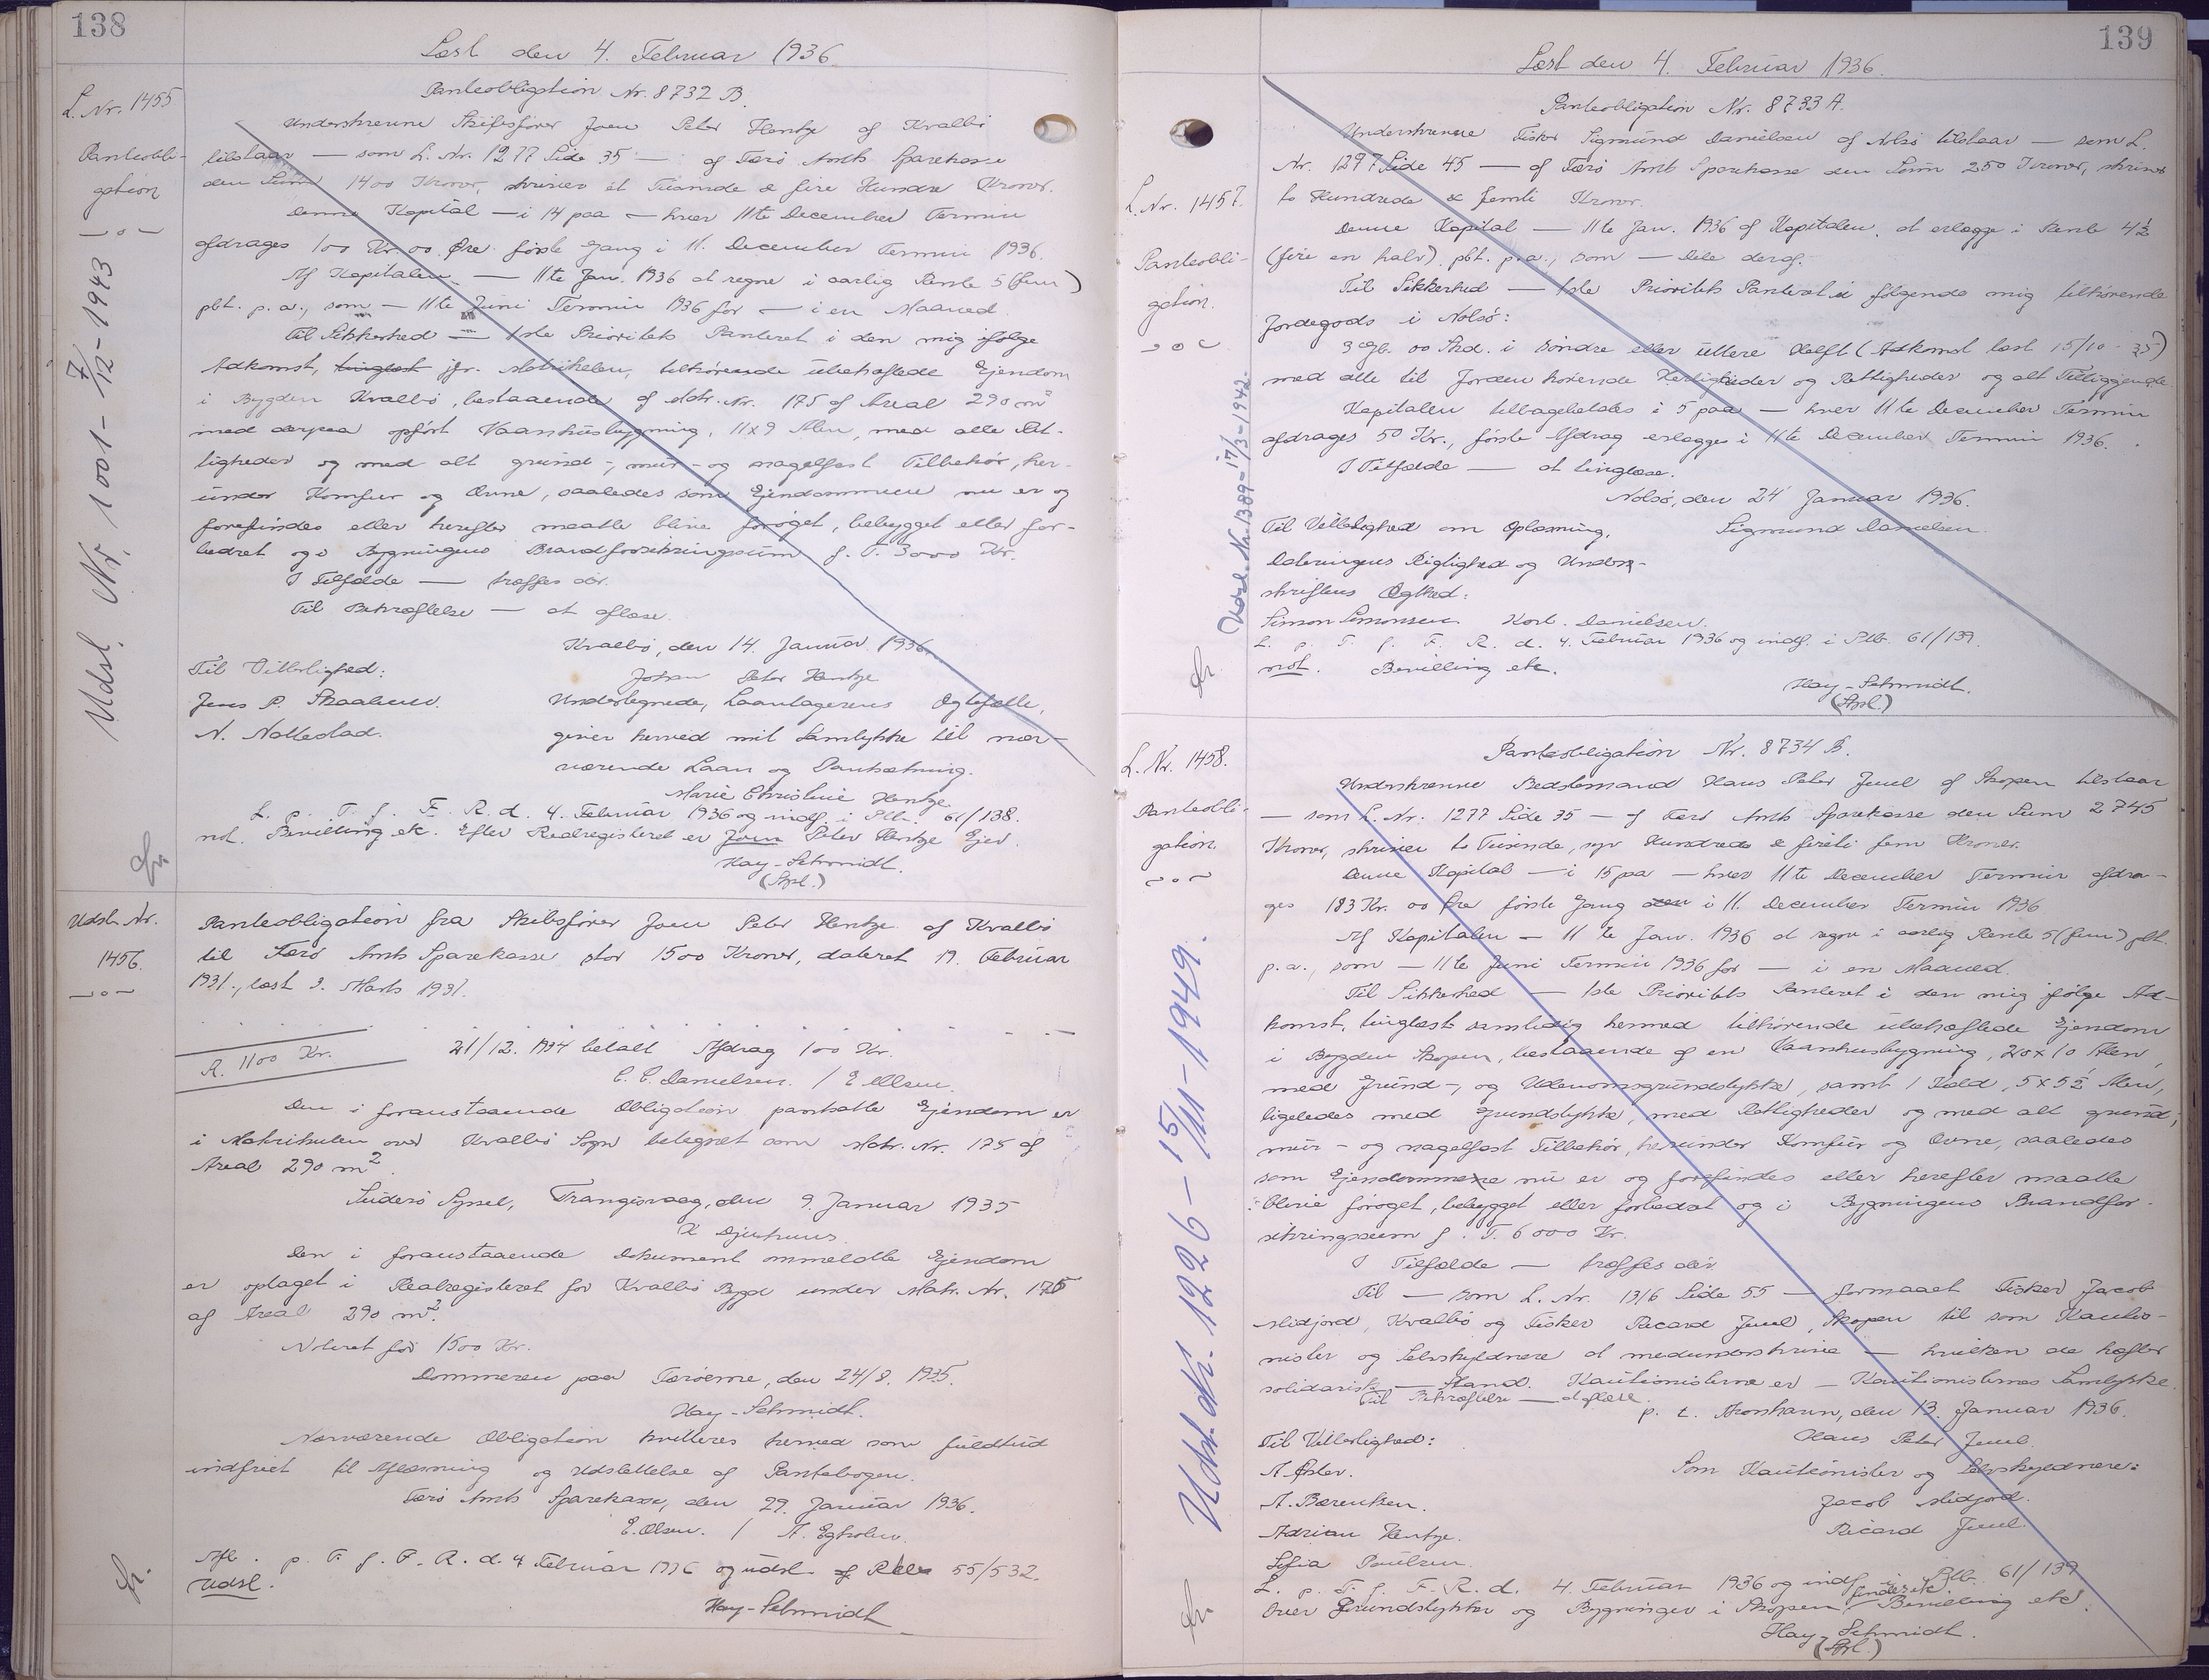 138
Læst den 4. Februar 1936
L. Nr. 1455
Panteobli-
gation
Udsl. Nr. 1001 - 7/12 - 1943
Panteobligation Nr. 8732 B.
Underskrevne Skibsfører Joen Peter Hentze af Kvalbø
tilstaar — som L. Nr. 1277 Side 35 — af Færø Amts Sparekasse
den Sum 1400 Kroner, skriver et Tusinde & fire Hundre Kroner.
Denne Kapital — i 14 paa — hver 11te December Termin
afdrages 100 Kr. 00 Øre første Gang i 11. December Termin 1936.
Af Kapitalen — 11te Jan. 1936 at regne i aarlig Rente 5 (fem)
pCt. p. a., som — 11te Juni Termin 1936 for — i en Maaned.
Til Sikkerhed — 1ste Prioritets Panteret i den mig ifølge
Adkomst, tinglæst jfr. Matrikelen, tilhørende ubehæftede Ejendom
i Bygden Kvalbø, bestaaende af Matr. Nr. 175 af Areal 290 m²
med derpaa opført Vaanhusbygning, 11x9 Alen, med alle Ret-
tigheder og med alt grund-, mur- og nagelfast Tilbehør, her-
under Komfur og Ovne, saaledes som Ejendommen nu er og
forefindes eller herefter maatte blive forøget, bebygget eller for-
bedret og i Bygningens Brandforsikringssum p. T. 3000 Kr.
I Tilfælde — træffes dér.
Til Bekræftelse — at aflæse.
Kvalbø, den 14. Januar 1936.
Til Vitterlighed:
Johan Peter Hentze
Jens P. Skaalum.
Undertegnede, Laantagerens Ægtefælle,
N. Nattestad.
giver herved mit Samtykke til nær-
værende Laan og Pantsætning.
Marie Christine Hentze
L. p. T. f. F. R. d. 4. Februar 1936 og indf. i Ptb. 61/138.
not. Bevilling etc. Efter Realregisteret er Joen Peter Hentze Ejer.
Hay-Schmidt.
(Spl.)
Udsl. Nr.
1456.
Panteobligation fra Skibsfører Joen Peter Hentze af Kvalbø
til Færø Amts Sparekasse stor 1500 Kroner, dateret 19. Februar
1931., læst 3. Marts 1931.
R. 1100 Kr.
21/12. 1934 betalt Afdrag 100 Kr.
C. C. Danielsen. / E. Olsen.
Den i foranstaaende Obligation pantsatte Ejendom er
i Matrikulen over Kvalbø Sogn betegnet som Matr. Nr. 175 af
Areal 290 m².
Suderø Syssel, Trangisvaag, den 9. Januar 1935
Djurhuus.
Den i foranstaaende Dokument ommeldte Ejendom
er optaget i Realregisteret for Kvalbø Bygd under Matr. Nr. 175
af Areal 290 m².
Noteret for 1500 Kr.
Dommeren paa Færøerne, den 24/8. 1935.
Hay-Schmidt.
Nærværende Obligation kvitteres herved som fuldtud
indfriet til Aflæsning og Udslettelse af Pantebogen.
Færø Amts Sparekasse, den 29. Januar 1936.
E. Olsen. / A. Egholm.
Afl. p. T. f. F. R. d. 4 Februar 1936 og udsl. af 55/532.
Udsl.
Hay-Schmidt
139
Læst den 4. Februar 1936.
L. Nr. 1457.
Panteobli-
gation.
Udsl. Nr. 1389 - 17/3 - 1942.
Panteobligation Nr. 8733 A.
Underskrevne Fisker Sigmund Danielsen af Nolsø tilstaar — som L.
Nr. 1297 Side 45 — af Færø Amts Sparekasse den Sum 250 Kroner, skriver
to Hundrede & femti Kroner.
Denne Kapital — 11te Jan. 1936 af Kapitalen, at erlægge i Rente 4½
(fire en halv) pCt. p. a., som — Dele deraf.
Til Sikkerhed — 1ste Prioritets Panteret i følgende mig tilhørende
Jordegods i Nolsø:
3 Gl. 00 Skd. i søndre eller ūttere Helft (Adkomst læst 15/10 - 35)
med alle til Jorden hørende Herligheder og Rettigheder og alt Tilliggende.
Kapitalen tilbagebetales i 5 paa — hver 11te December Termin
afdrages 50 Kr., første Afdrag erlægges i 11te December Termin 1936.
I Tilfælde — at tinglæse.
Nolsø, den 24 Januar 1936.
Til Vitterlighed om Oplæsning,
Sigmund Danielsen
Dateringens Rigtighed og Under-
skriftens Ægthed:
Simon Simonsen Danielsen.
L. p. T. f. F. R. d. 4. Februar 1936 og indf. i Ptb. 61/139.
not. Bevilling etc.
Hay-Schmidt.
(Spl.)
L. Nr. 1458.
Panteobli-
gation.
Udsl. Nr. 1226 - 15/11 - 1949.
Panteobligation Nr. 8734 B.
Underskrevne Bedstemand Hans Peter Juul af Skopen tilstaar
— som L. Nr. 1277 Side 35 — af Færø Amts Sparekasse den Sum 2745
Kroner, skriver to Tusinde, syv Hundrede & firti fem Kroner.
Denne Kapital — i 15 paa — hver 11te December Termin afdra-
ges 183 Kr. 00 Øre første Gang den i 11. December Termin 1936.
Af Kapitalen — 11te Jan. 1936 at regne i aarlig Rente 5 (fem) pCt.
p. a., som — 11te Juni Termin 1936 for — i en Maaned.
Til Sikkerhed — 1ste Prioritets Panteret i den mig ifølge Ad-
komst, tinglæst samtidig hermed tilhørende ubehæftede Ejendom
i Bygden Skopen, bestaaende af en Vaanhusbygning, 20 x 10 Alen,
med Grund-, og Udenomsgrundstykke, samt 1 Kjald, 5 x 5½ Alen,
ligeledes med Grundstykke, med Rettigheder og med alt grund,
mur- og nagelfast Tilbehør, herunder Komfur og Ovne, saaledes
som Ejendommene nu er og forefindes eller herefter maatte
blive forøget, bebygget eller forbedret og i Bygningens Brandfor-
sikringssum p. T. 6000 Kr.
I Tilfælde — træffes dér.
Til — som L. Nr. 1316 Side 55 — formaaet Fisker Jacob
Midjord, Kvalbø og Fisker Ricard Juul, Skopen til som Kautio-
nister og Selvskyldnere at medunderskrive — hvilken de hæfter
solidarisk — Stand. Kautionisterne er — Kautionisternes Samtykke.
Til Bekræftelse — at aflæse.
p. t. Thorshavn, den 13. Januar 1936.
Til Vitterlighed:
Hans Peter Juul.
A. Øster.
Som Kautionister og Selvskyldnere:
A. Bærentsen.
Jacob Midjord.
Adrian Hentze.
Ricard Juul.
Sofia Poulsen.
L. p. T. f. F. R. d. 4. Februar 1936 og indf. i Ptb. 61/139
over Grundstykker og Bygninger i Skopen findes ik. Bevilling etc.
Hay-Schmidt.
(Spl.)